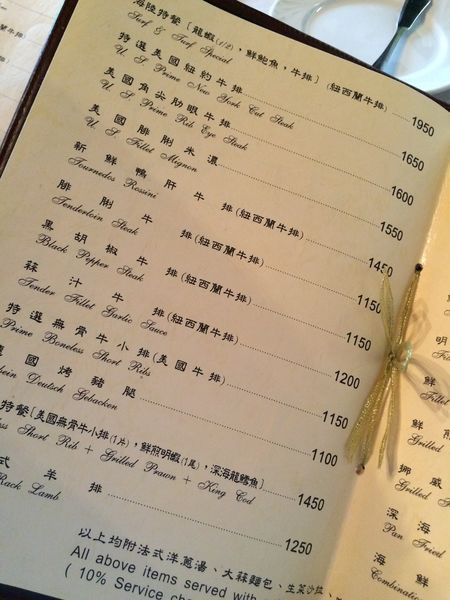 海陸特餐〔龍蝦(1/2)，鮮鮑魚，牛排〕(紐西蘭牛排) 1950
Surf & Turf Special
特選美國紐約牛排 1650
U. S. Prime New York Cut Steak
美國角尖肋眼牛排 1600
U. S. Prime Rib Eye Steak
美國腓利米濃 1550
U. S. Fillet Mignon
新鮮鴨肝牛排(紐西蘭牛排) 1450
Tournedos Rossini
腓利牛排(紐西蘭牛排) 1150
Tenderloin Steak
黑胡椒牛排(紐西蘭牛排) 1150
Black Pepper Steak
蒜汁牛排(紐西蘭牛排) 1200
Tender Fillet Garlic Sauce
特選無骨牛小排(美國牛排) 1150
Prime Boneless Short Ribs
國烤豬腿 1100
Deutsch Gebacken
特餐〔美國無骨牛小排(1片)，鮮煎明蝦(1尾)，深海龍鱈魚〕 1450
Short Rib + Grilled Prawn + King Cod
式羊排 1250
Rack Lamb
以上均附法式洋蔥湯、大蒜麵包、生菜沙拉、
All above items served with
( 10% Service
明
鮮
Fillet
鮮煎
Grilled
挪威
Grilled
深海
Pan Fried
海鮮
Combination